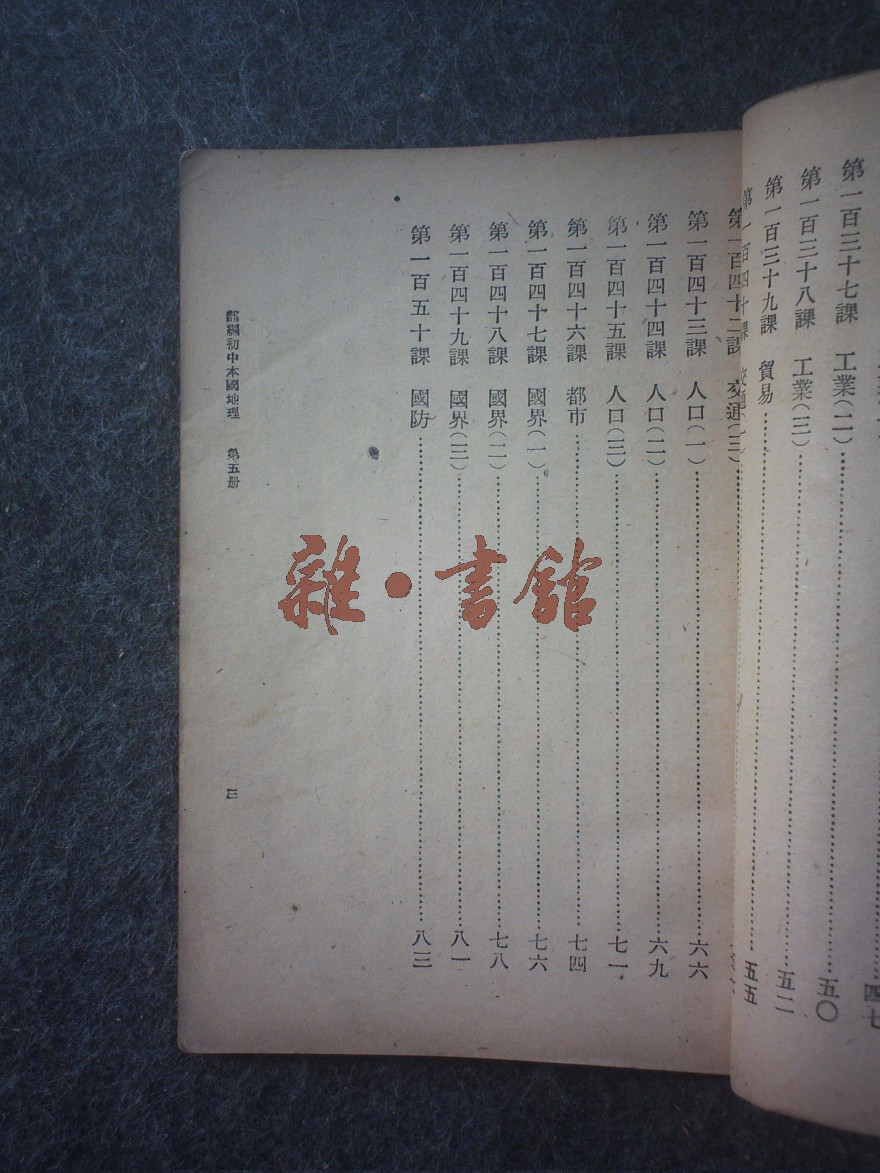 四七
第一百三十七課 工業(二)……五〇
第一百三十八課 工業(三)……五二
第一百三十九課 貿易……五五
第一百四十課 交通(一)
第一百四十二課 交通(三)……
第一百四十三課 人口(一)……六六
第一百四十四課 人口(二)……六九
第一百四十五課 人口(三)……七一
第一百四十六課 都市……七四
第一百四十七課 國界(一)……七六
第一百四十八課 國界(二)……七八
第一百四十九課 國界(三)……八一
第一百五十課 國防……八三
部編初中本國地理 第五册
三
雜·書館